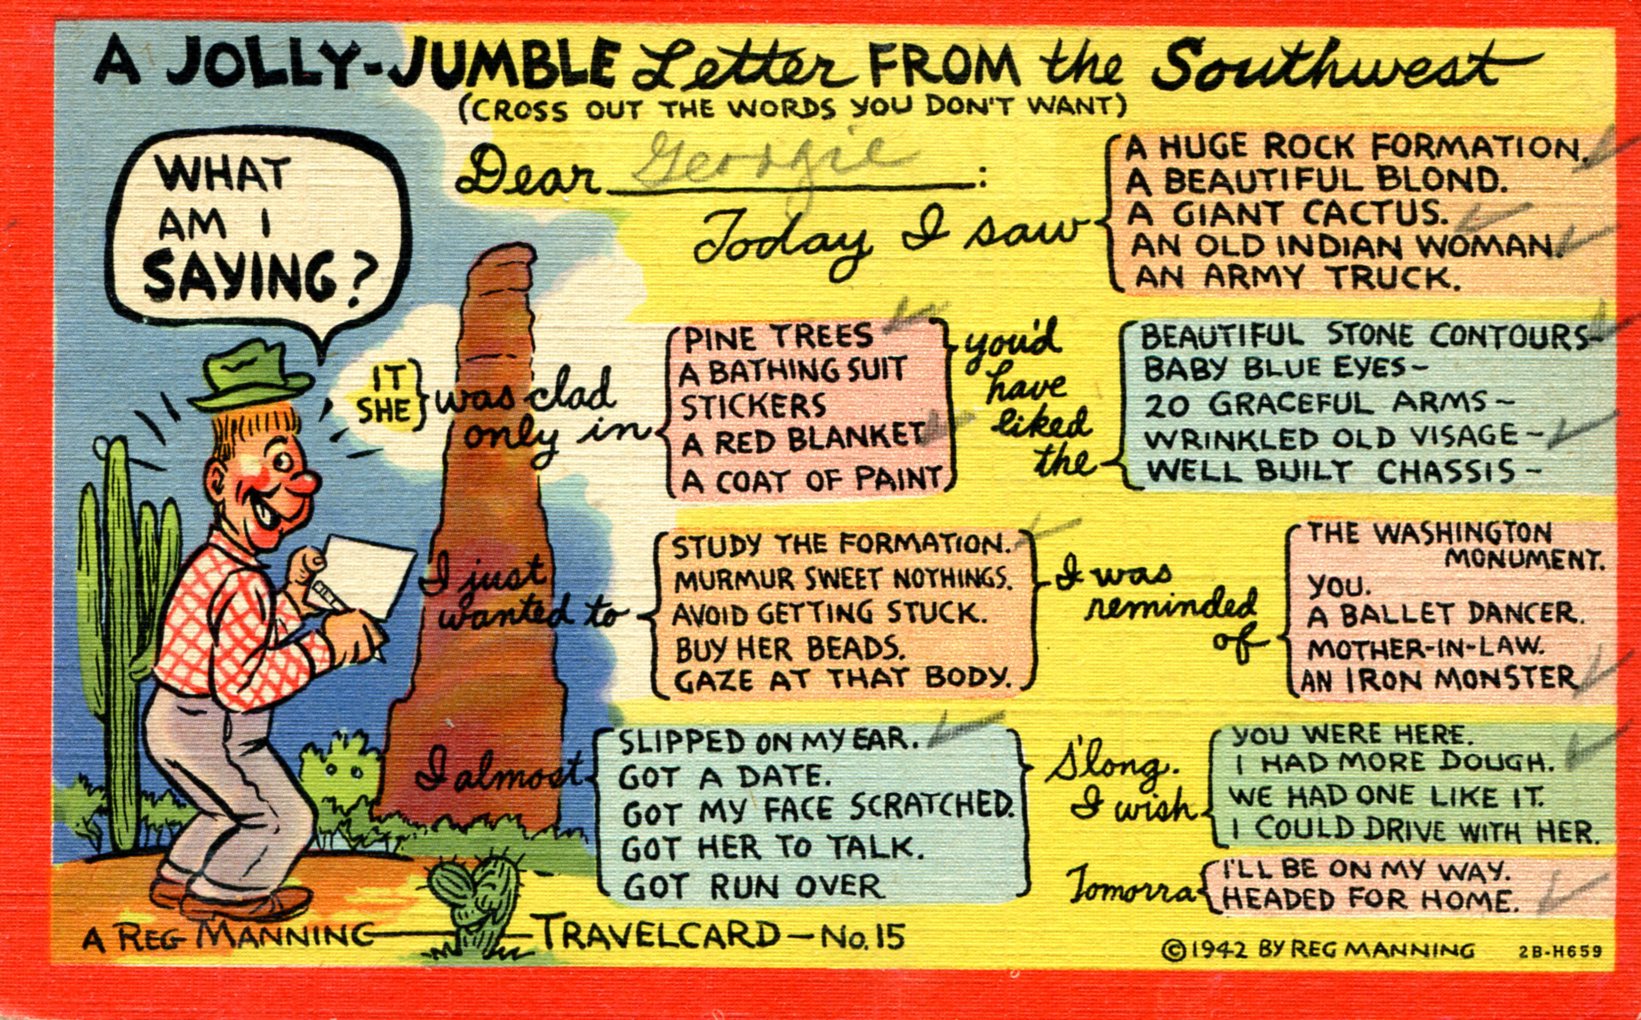 A JOLLY-JUMBLE Letter FROM the Southwest
(CROSS OUT THE WORDS YOU DON'T WANT)
WHAT
AM I
SAYING?
Dear Georgie :
Today I saw
A HUGE ROCK FORMATION.
A BEAUTIFUL BLOND.
A GIANT CACTUS.
AN OLD INDIAN WOMAN.
AN ARMY TRUCK.
IT
SHE
was clad
only in
PINE TREES
A BATHING SUIT
STICKERS
A RED BLANKET
A COAT OF PAINT
you'd
have
liked
the
BEAUTIFUL STONE CONTOURS-
BABY BLUE EYES-
20 GRACEFUL ARMS-
WRINKLED OLD VISAGE-
WELL BUILT CHASSIS-
I just
wanted to
STUDY THE FORMATION.
MURMUR SWEET NOTHINGS.
AVOID GETTING STUCK.
BUY HER BEADS.
GAZE AT THAT BODY.
I was
reminded
of
THE WASHINGTON
MONUMENT.
YOU.
A BALLET DANCER.
MOTHER-IN-LAW.
AN IRON MONSTER
I almost
SLIPPED ON MY EAR.
GOT A DATE.
GOT MY FACE SCRATCHED.
GOT HER TO TALK.
GOT RUN OVER
S'long.
I wish
YOU WERE HERE.
I HAD MORE DOUGH.
WE HAD ONE LIKE IT.
I COULD DRIVE WITH HER.
Tomorra
I'LL BE ON MY WAY.
HEADED FOR HOME.
A REG MANNING TRAVELCARD-No. 15
©1942 BY REG MANNING 2B-H659